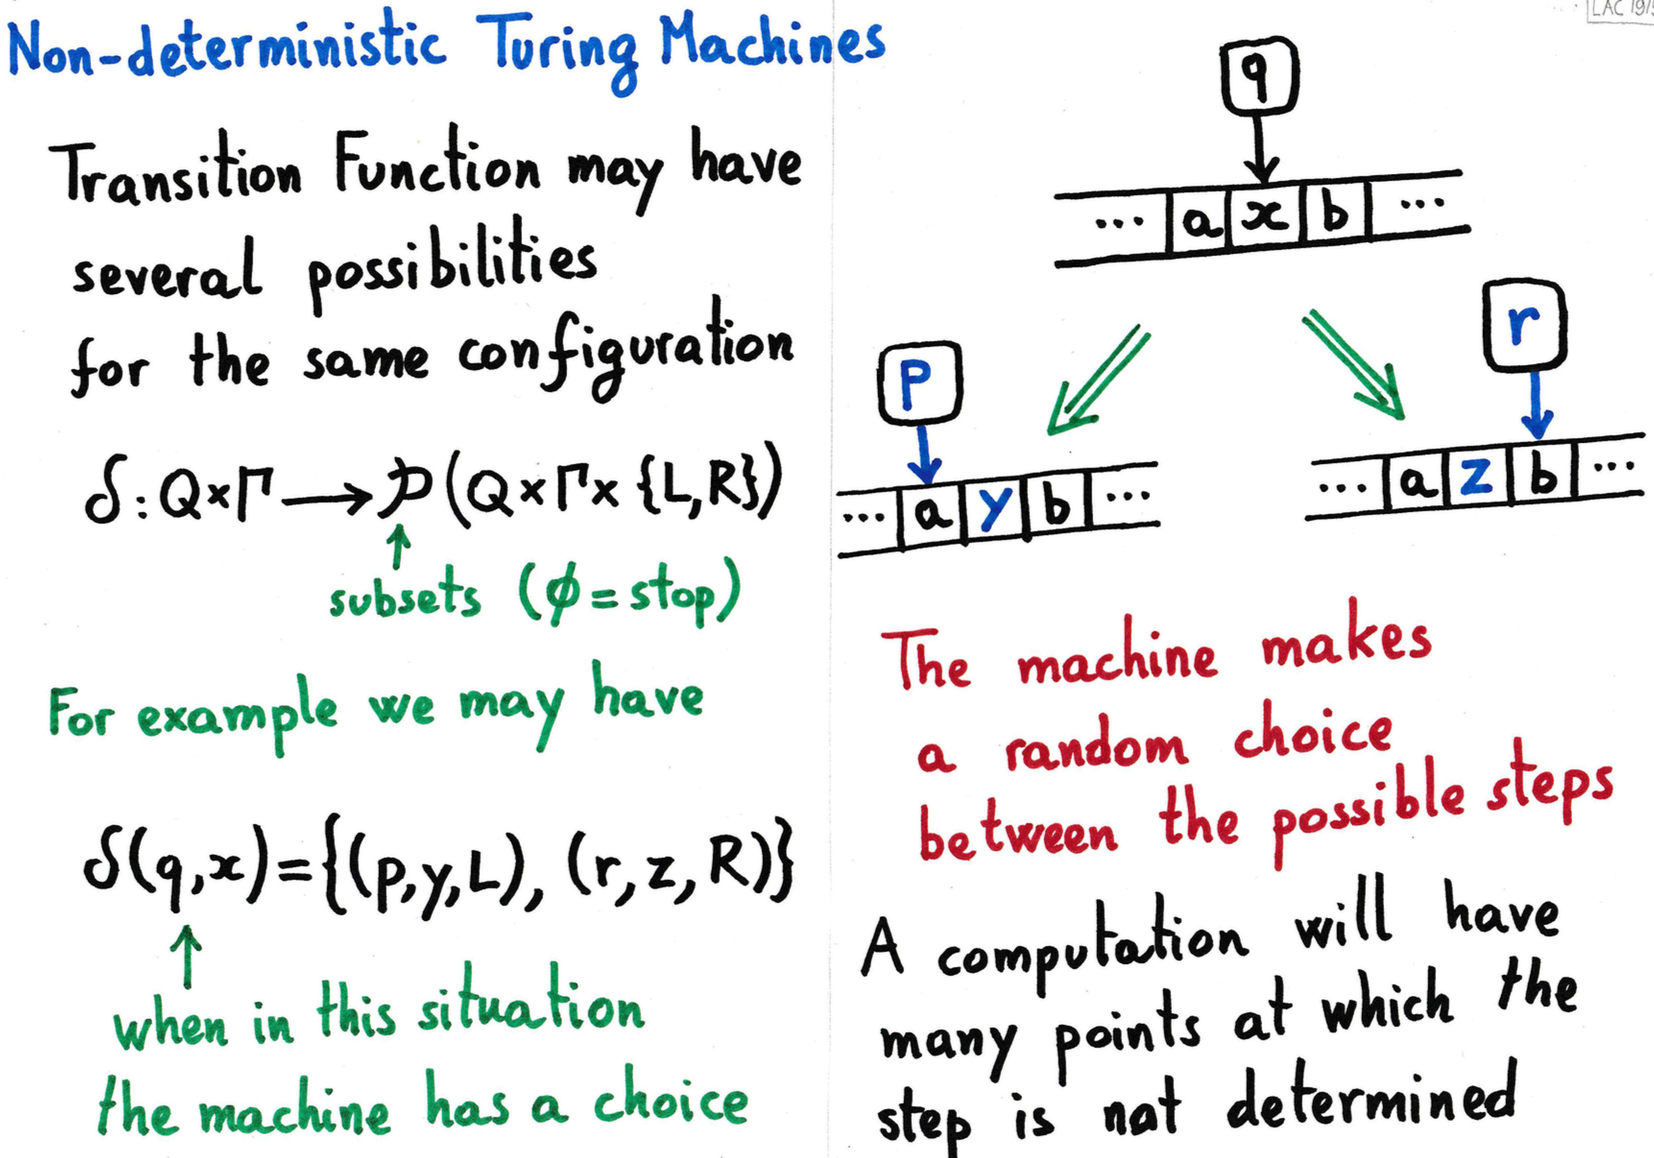 Non-deterministic Turing Machines
Transition Function may have
several possibilities
for the same configuration
δ: Q×Γ ⟶ 𝒫(Q×Γ×{L,R})
↑
subsets (∅ = stop)
For example we may have
δ(q,x)={(p,y,L), (r,z,R)}
↑
when in this situation
the machine has a choice
q
... a x b ...
p
... a y b ...
r
... a z b ...
The machine makes
a random choice
between the possible steps
A computation will have
many points at which the
step is not determined